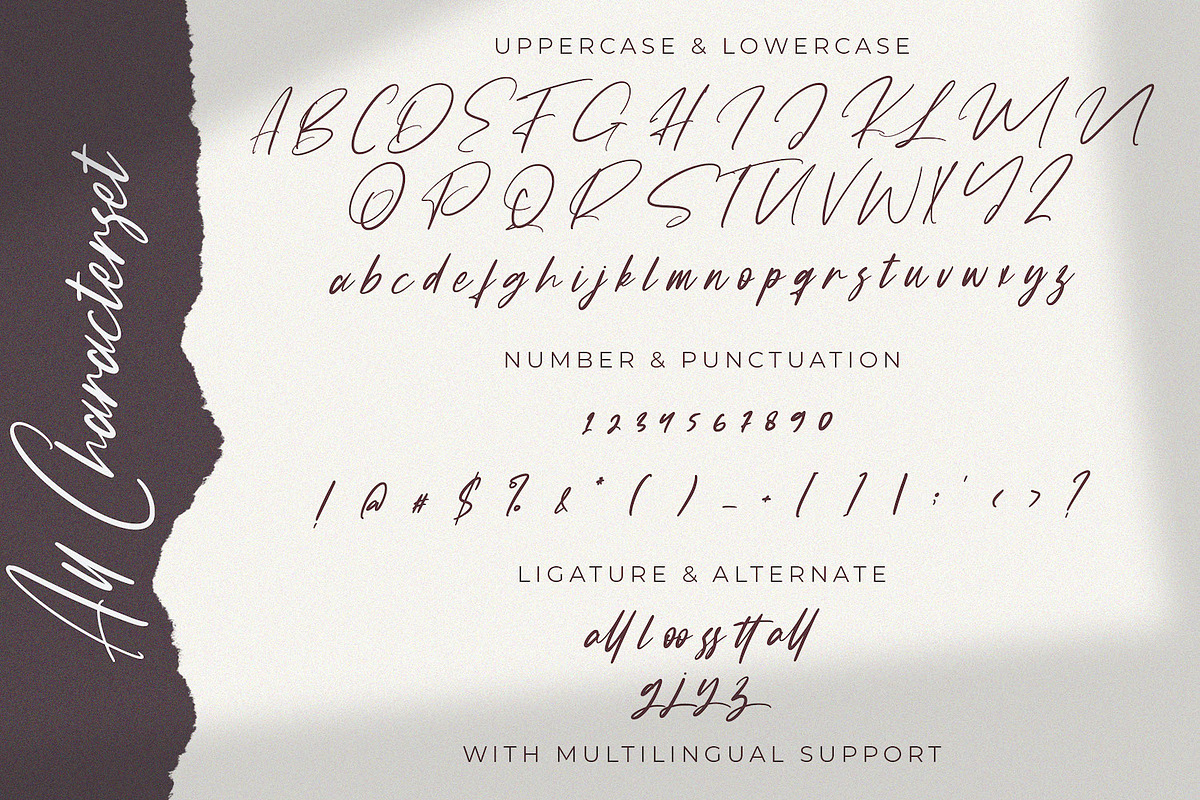 Ay Characterset
UPPERCASE & LOWERCASE
ABCDEFGHIJKLMN
OPQRSTUVWXYZ
abcdefghijklmnopqrstuvwxyz
NUMBER & PUNCTUATION
1 2 3 4 5 6 7 8 9 0
! @ # $ % & * ( ) _ + [ ] | ; ' < > ?
LIGATURE & ALTERNATE
all l oo ss tt all
g j y z
WITH MULTILINGUAL SUPPORT